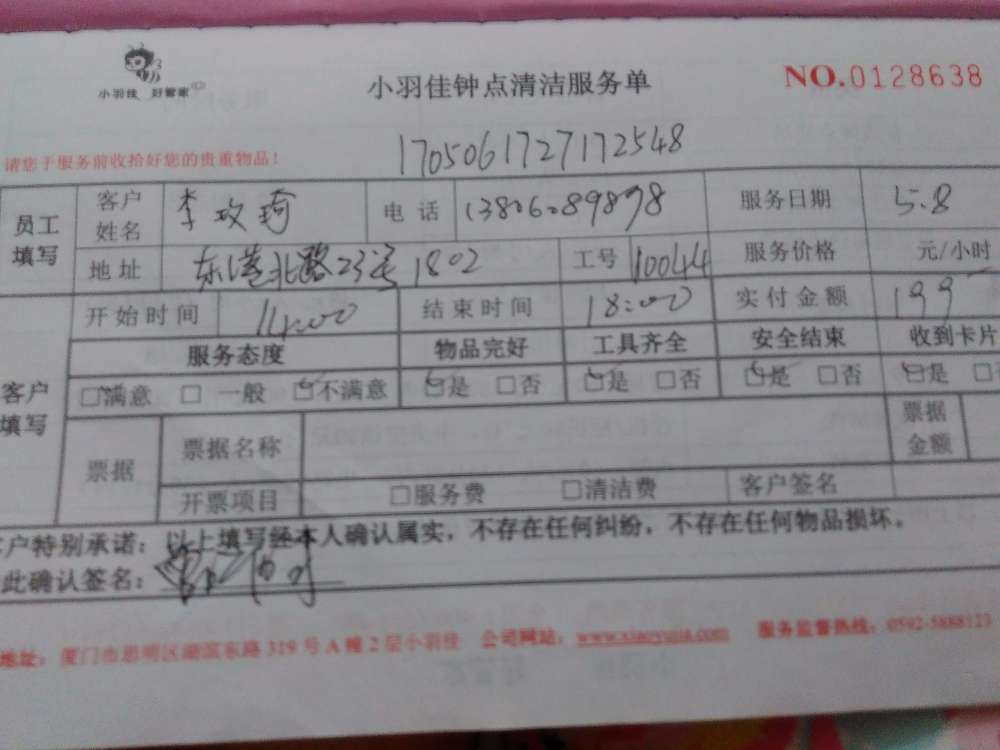 小羽佳 好管家
小羽佳钟点清洁服务单
NO.0128638
请您于服务前收拾好您的贵重物品！
1705061727172548
员工填写 客户姓名 李玫琦 电话 13806089878 服务日期 5.8
地址 东港北路23号1802 工号 10044 服务价格 元/小时
客户填写 开始时间 14:00 结束时间 18:00 实付金额 199
服务态度 物品完好 工具齐全 安全结束 收到卡片
□满意 □一般 □不满意 □是 □否 □是 □否 □是 □否 □是 □否
票据 票据名称 票据金额
开票项目 □服务费 □清洁费 客户签名
客户特别承诺：以上填写经本人确认属实，不存在任何纠纷，不存在任何物品损坏。
此确认签名：
地址：厦门市思明区湖滨东路319号A幢2层小羽佳 公司网站：www.xiaoyujia.com 服务监督热线：0592-5888123